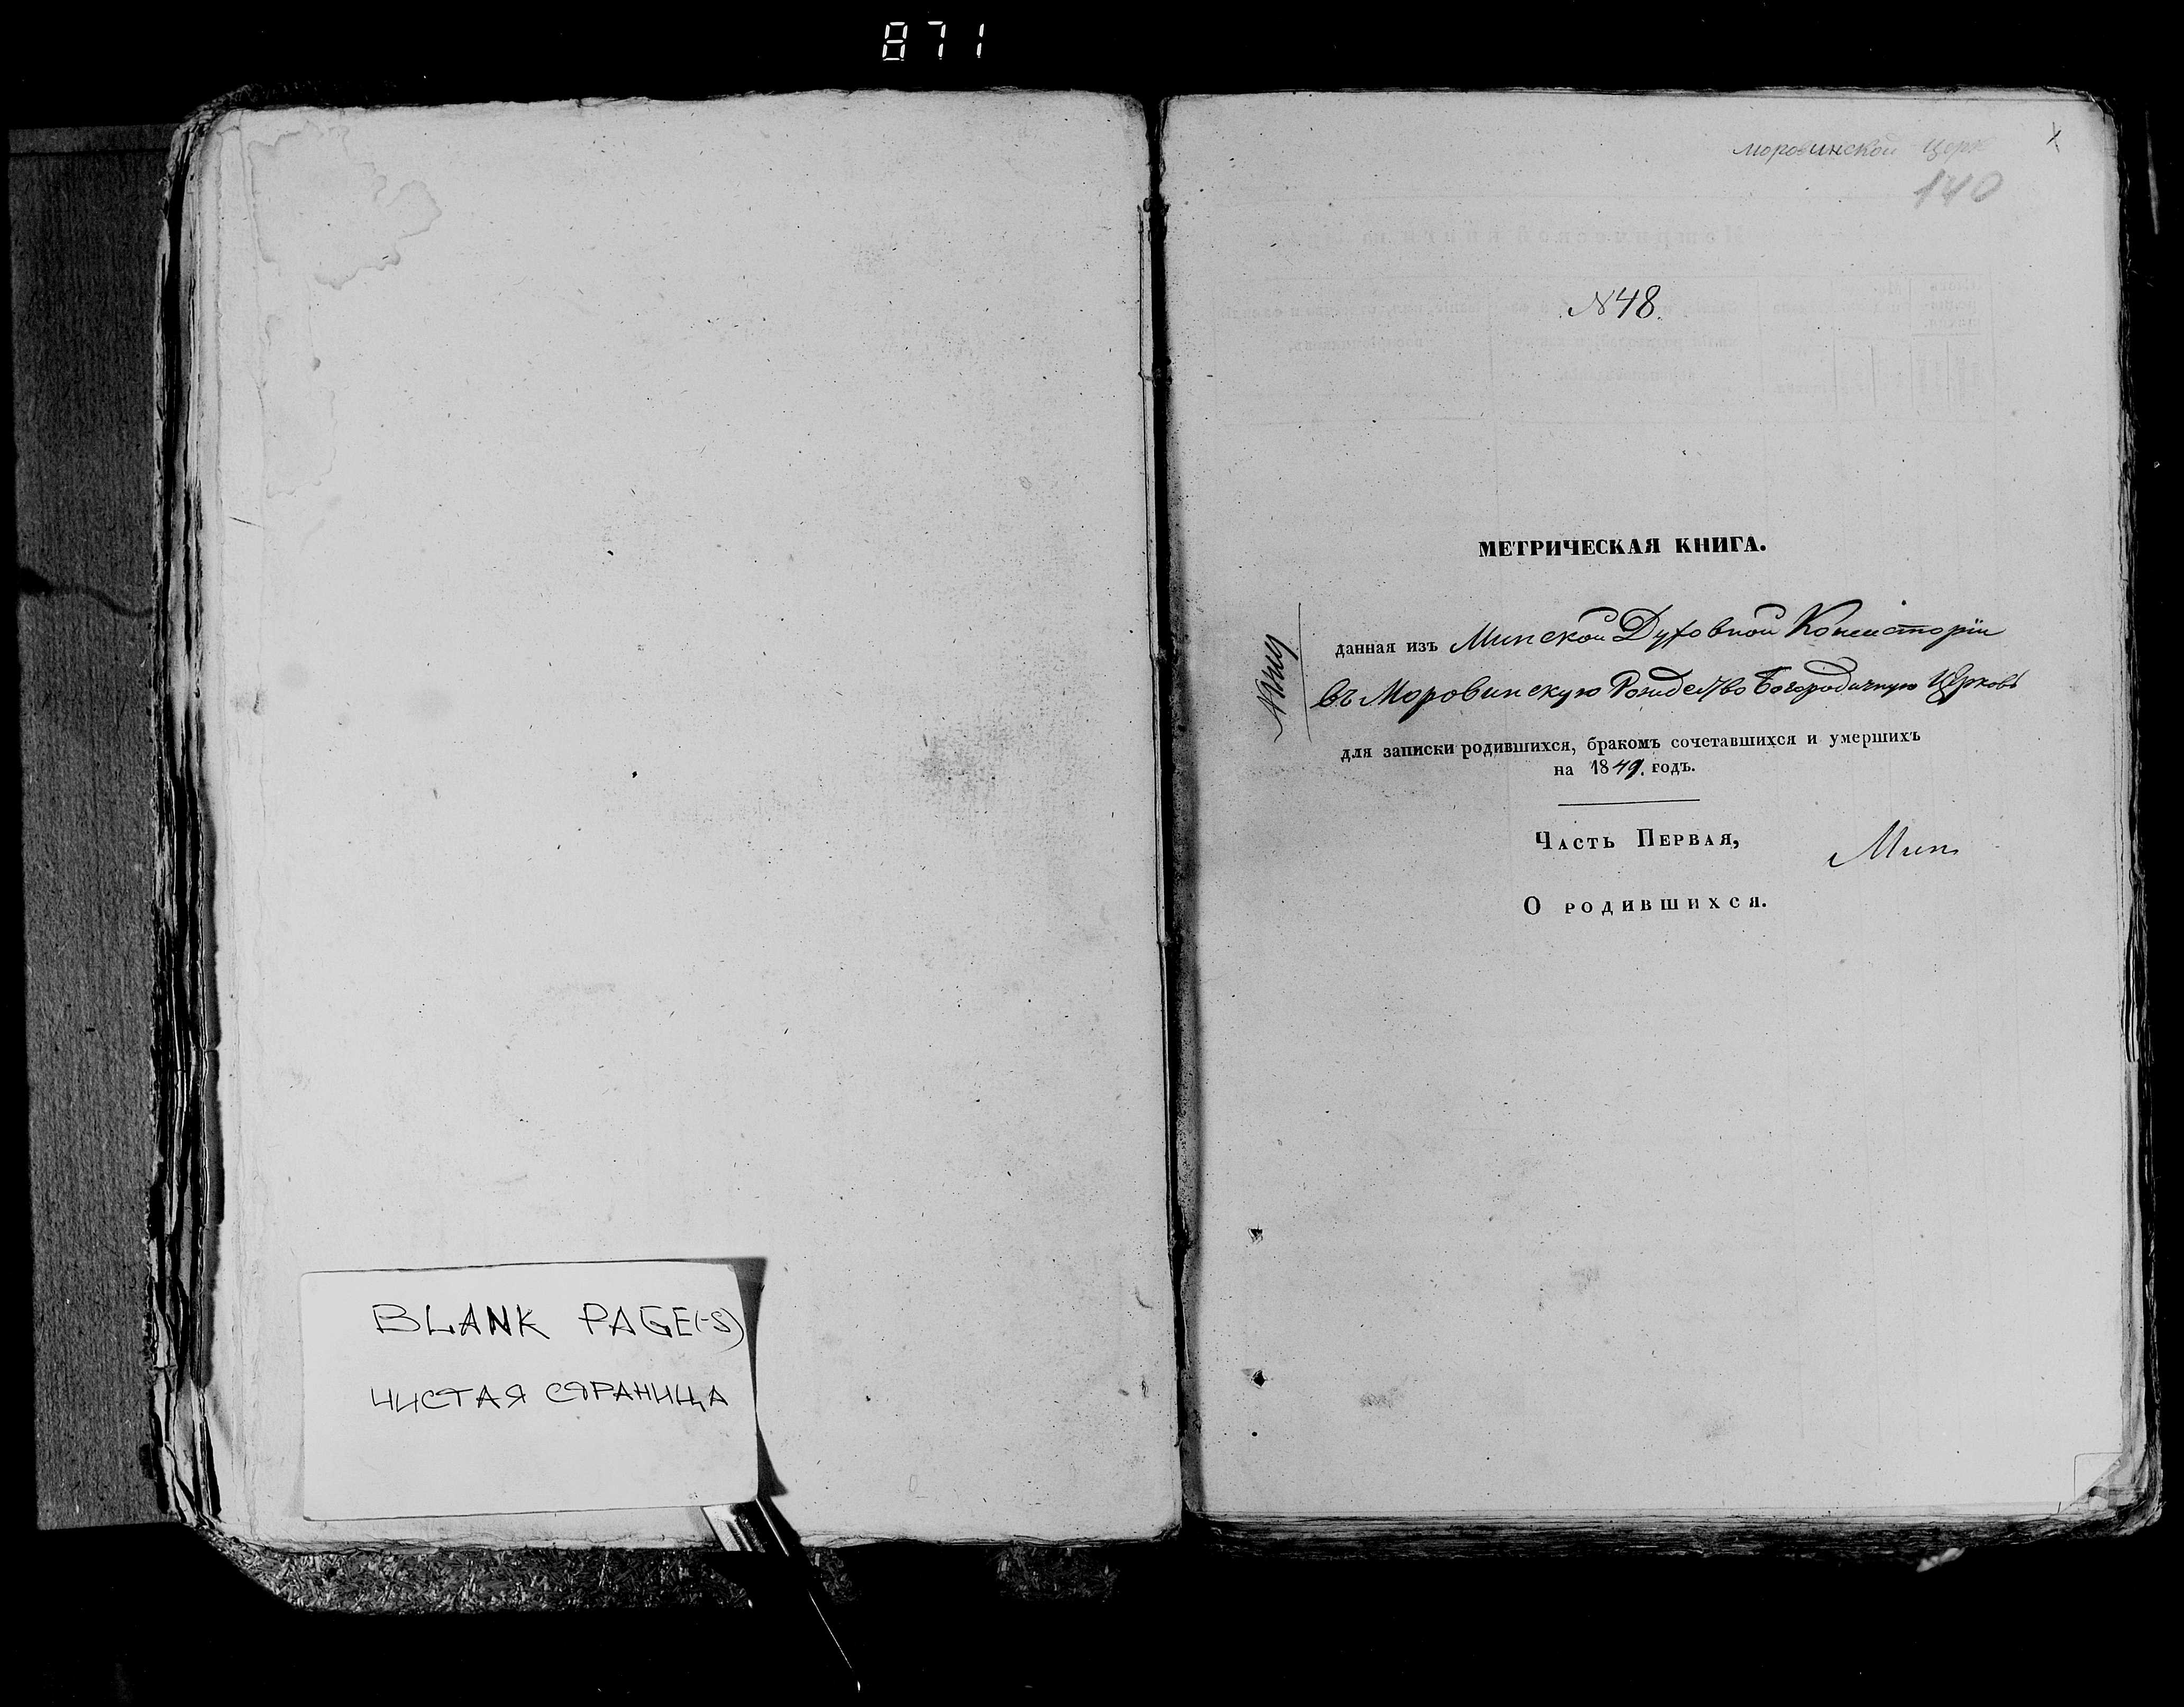 871
BLANK PAGE(-S)
ЧИСТАЯ СТРАНИЦА
Моровинской церк
140
N 48.
МЕТРИЧЕСКАЯ КНИГА.
данная изъ Минской Духовной Консисторіи
въ Моровинскую Рождество Богородичную Церковь
для записки родившихся, бракомъ сочетавшихся и умершихъ
на 1849. годъ.
Часть Первая,
Мин
О родившихся.